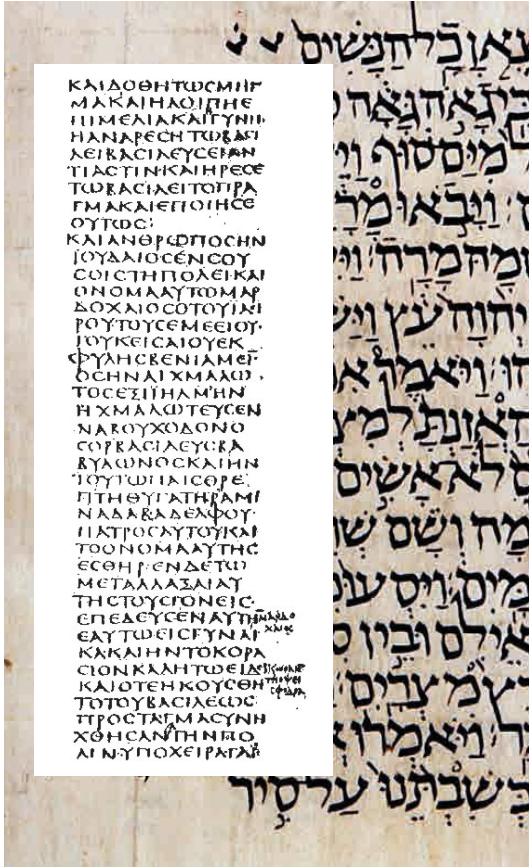 ΚΑΙΔΟΘΗΤΩϹΜΗΓ
ΜΑΚΑΙΗΛΟΙΠΗΕ
ΠΙΜΕΛΙΑΚΑΙΓΥΝΗ
ΗΑΝΑΡΕϹΗΤΩΒΑϹΙ
ΛΕΙΒΑϹΙΛΕΥϹΕΙΑΝ
ΤΙΑϹΤΙΝ·ΚΑΙΗΡΕϹΕ
ΤΩΒΑϹΙΛΕΙΤΟΠΡΑ
ΓΜΑΚΑΙΕΠΟΙΗϹΕ
ΟΥΤΩϹ:
ΚΑΙΑΝΘΡΩΠΟϹΗΝ
ΙΟΥΔΑΙΟϹΕΝϹΟΥ
ϹΟΙϹΤΗΠΟΛΕΙ·ΚΑΙ
ΟΝΟΜΑΑΥΤΩΜΑΡ
ΔΟΧΑΙΟϹΟΤΟΥΙΑΕΙ
ΡΟΥΤΟΥϹΕΜΕΕΙΟΥ·
ΤΟΥΚΕΙϹΑΙΟΥΕΚ
ΦΥΛΗϹΒΕΝΙΑΜΕΙ
ΟϹΗΝΑΙΧΜΑΛΩ
ΤΟϹΕΞΙΗΛΜΗΝ
ΗΧΜΑΛΩΤΕΥϹΕΝ
ΝΑΒΟΥΧΟΔΟΝΟ
ϹΟΡΒΑϹΙΛΕΥϹΒΑ
ΒΥΛΩΝΟϹΚΑΙΗΝ
ΤΟΥΤΩΠΑΙϹΘΡΕ
ΠΤΗΘΥΓΑΤΗΡΑΜΙ
ΝΑΔΑΒΑΔΕΛΦΟΥ
ΠΑΤΡΟϹΑΥΤΟΥΚΑΙ
ΤΟΟΝΟΜΑΑΥΤΗϹ
ΕϹΘΗΡ·ΕΝΔΕΤΩ
ΜΕΤΑΛΛΑΞΑΙΑΥ
ΤΗϹΤΟΥϹΓΟΝΕΙϹ·
ΕΠΕΔΕΥϹΕΝΑΥΤΗ
ΕΑΥΤΩΕΙϹΓΥΝΑΙ
ΚΑΚΑΙΗΝΤΟΚΟΡΑ
ϹΙΟΝΚΑΛΗΤΩΕΙΔΕΙ
ΚΑΙΟΤΕΗΚΟΥϹΘΗ
ΤΟΤΟΥΒΑϹΙΛΕΩϹ
ΠΡΟϹΤΑΓΜΑϹΥΝΗ
ΧΘΗϹΑΝΤΗΝΠΟ
ΛΙΝ·ΥΠΟΧΕΙΡΑΓΑΙ
כָל הַנָּשִׁים
גָאֹה גָּאָה
מִיַּם סוּף
וַיָּבֹאוּ
מָרָה
יְהוָה עֵץ
וַיֹּאמֶר
הַאֲזַנְתָּ
לֹא אָשִׂים
וְשָׁם
אֵילִם וּבֵין
מִצְרַיִם
וַיֹּאמְרוּ
בְּשִׁבְתֵּנוּ עַל סִיר